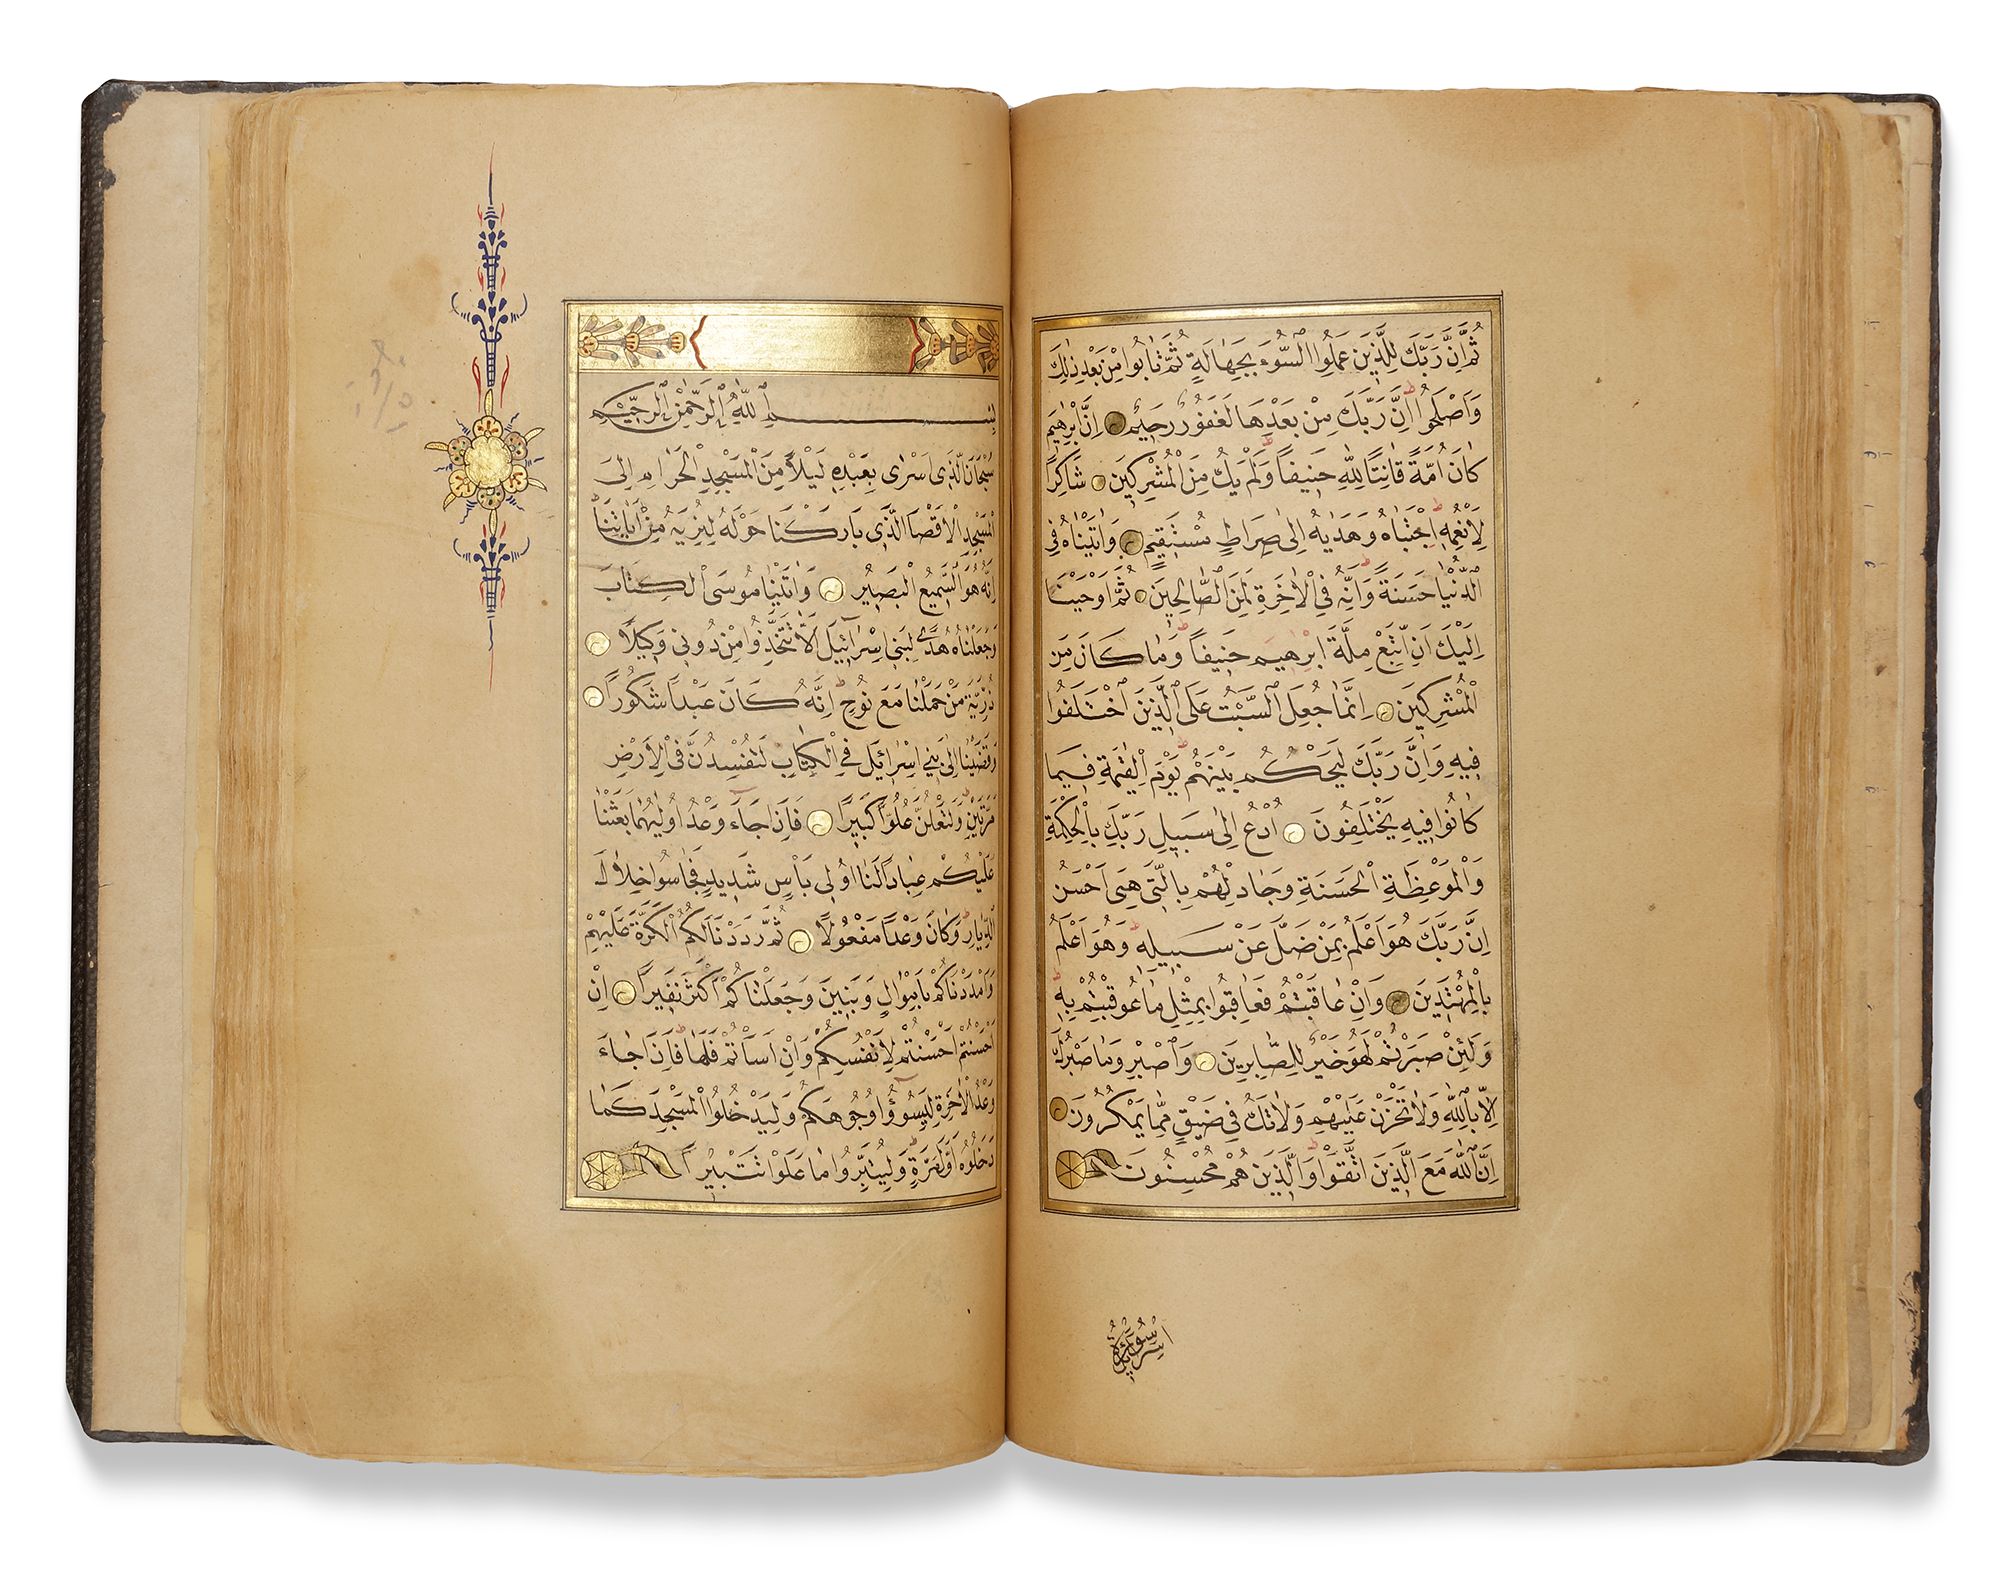 ثُمَّ اِنَّ رَبَّكَ لِلَّذِينَ عَمِلُوا السُّوءَ بِجَهَالَةٍ ثُمَّ تَابُوا مِنْ بَعْدِ ذٰلِكَ
وَاَصْلَحُوا اِنَّ رَبَّكَ مِنْ بَعْدِهَا لَغَفُورٌ رَحِيمٌ اِنَّ اِبْرٰهِيمَ
كَانَ اُمَّةً قَانِتًا لِلّٰهِ حَنِيفًا وَلَمْ يَكُ مِنَ الْمُشْرِكِينَ شَاكِرًا
لِاَنْعُمِهِ اِجْتَبٰاهُ وَهَدٰيهُ اِلٰى صِرَاطٍ مُسْتَقِيمٍ وَاٰتَيْنَاهُ فِى
الدُّنْيَا حَسَنَةً وَاِنَّهُ فِى الْاٰخِرَةِ لَمِنَ الصَّالِحِينَ ثُمَّ اَوْحَيْنَا
اِلَيْكَ اَنِ اتَّبِعْ مِلَّةَ اِبْرٰهِيمَ حَنِيفًا وَمَا كَانَ مِنَ
الْمُشْرِكِينَ اِنَّمَا جُعِلَ السَّبْتُ عَلَى الَّذِينَ اخْتَلَفُوا
فِيهِ وَاِنَّ رَبَّكَ لَيَحْكُمُ بَيْنَهُمْ يَوْمَ الْقِيٰمَةِ فِيمَا
كَانُوا فِيهِ يَخْتَلِفُونَ اُدْعُ اِلٰى سَبِيلِ رَبِّكَ بِالْحِكْمَةِ
وَالْمَوْعِظَةِ الْحَسَنَةِ وَجَادِلْهُمْ بِالَّتِى هِىَ اَحْسَنُ
اِنَّ رَبَّكَ هُوَ اَعْلَمُ بِمَنْ ضَلَّ عَنْ سَبِيلِهِ وَهُوَ اَعْلَمُ
بِالْمُهْتَدِينَ وَاِنْ عَاقَبْتُمْ فَعَاقِبُوا بِمِثْلِ مَا عُوقِبْتُمْ بِهِ
وَلَئِنْ صَبَرْتُمْ لَهُوَ خَيْرٌ لِلصَّابِرِينَ وَاصْبِرْ وَمَا صَبْرُكَ
اِلَّا بِاللّٰهِ وَلَا تَحْزَنْ عَلَيْهِمْ وَلَا تَكُ فِى ضَيْقٍ مِمَّا يَمْكُرُونَ
اِنَّ اللّٰهَ مَعَ الَّذِينَ اتَّقَوْا وَالَّذِينَ هُمْ مُحْسِنُونَ
سورة اسرائيل
بِسْمِ اللّٰهِ الرَّحْمٰنِ الرَّحِيمِ
سُبْحَانَ الَّذِى اَسْرٰى بِعَبْدِهِ لَيْلًا مِنَ الْمَسْجِدِ الْحَرَامِ اِلَى
الْمَسْجِدِ الْاَقْصَا الَّذِى بَارَكْنَا حَوْلَهُ لِنُرِيَهُ مِنْ اٰيَاتِنَا
اِنَّهُ هُوَ السَّمِيعُ الْبَصِيرُ وَاٰتَيْنَا مُوسَى الْكِتَابَ
وَجَعَلْنَاهُ هُدًى لِبَنِى اِسْرَآئِيلَ اَلَّا تَتَّخِذُوا مِنْ دُونِى وَكِيلًا
ذُرِّيَّةَ مَنْ حَمَلْنَا مَعَ نُوحٍ اِنَّهُ كَانَ عَبْدًا شَكُورًا
وَقَضَيْنَا اِلٰى بَنِى اِسْرَآئِيلَ فِى الْكِتَابِ لَتُفْسِدُنَّ فِى الْاَرْضِ
مَرَّتَيْنِ وَلَتَعْلُنَّ عُلُوًّا كَبِيرًا فَاِذَا جَآءَ وَعْدُ اُولٰيهُمَا بَعَثْنَا
عَلَيْكُمْ عِبَادًا لَنَا اُولِى بَاْسٍ شَدِيدٍ فَجَاسُوا خِلَالَ
الدِّيَارِ وَكَانَ وَعْدًا مَفْعُولًا ثُمَّ رَدَدْنَا لَكُمُ الْكَرَّةَ عَلَيْهِمْ
وَاَمْدَدْنَاكُمْ بِاَمْوَالٍ وَبَنِينَ وَجَعَلْنَاكُمْ اَكْثَرَ نَفِيرًا اِنْ
اَحْسَنْتُمْ اَحْسَنْتُمْ لِاَنْفُسِكُمْ وَاِنْ اَسَاْتُمْ فَلَهَا فَاِذَا جَآءَ
وَعْدُ الْاٰخِرَةِ لِيَسُوؤُا وُجُوهَكُمْ وَلِيَدْخُلُوا الْمَسْجِدَ كَمَا
دَخَلُوهُ اَوَّلَ مَرَّةٍ وَلِيُتَبِّرُوا مَا عَلَوْا تَتْبِيرًا